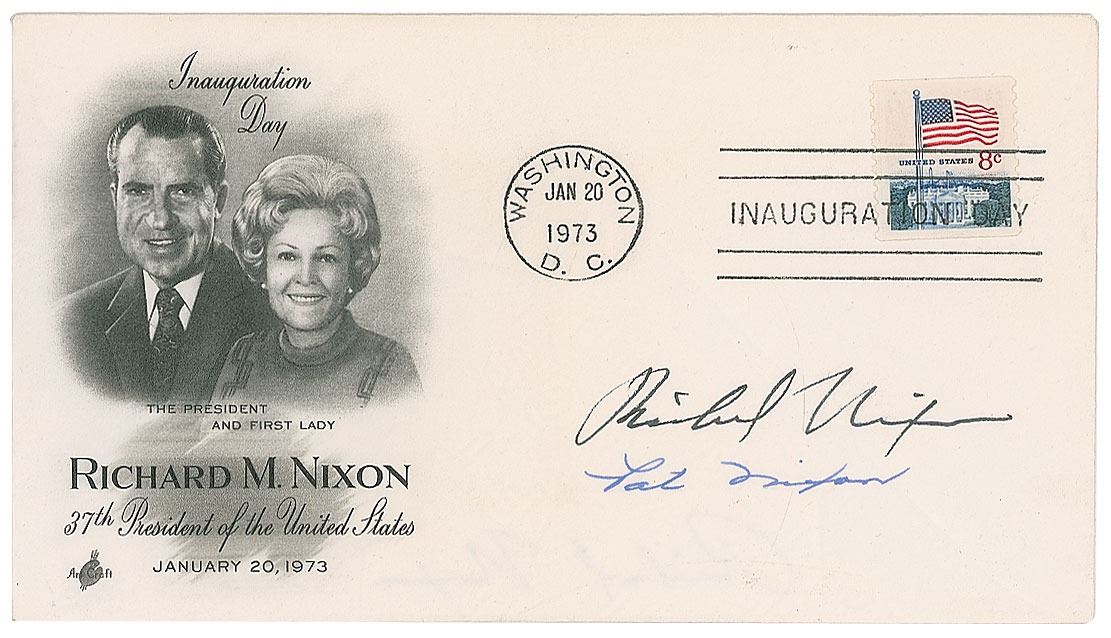 Inauguration
Day
THE PRESIDENT
AND FIRST LADY
RICHARD M. NIXON
37th President of the United States
JANUARY 20, 1973
ArtCraft
WASHINGTON
JAN 20
1973
D. C.
UNITED STATES 8c
INAUGURATION DAY
Richard Nixon
Pat Nixon